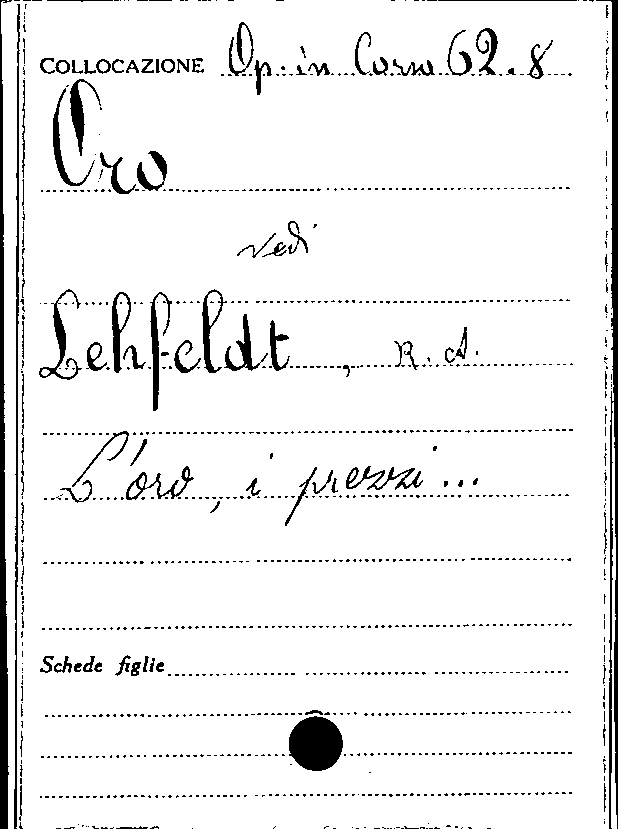 COLLOCAZIONE Op. in Corso 62.8
Oro
vedi
Lehfeldt, R. A.
L'oro, i prezzi...
Schede figlie